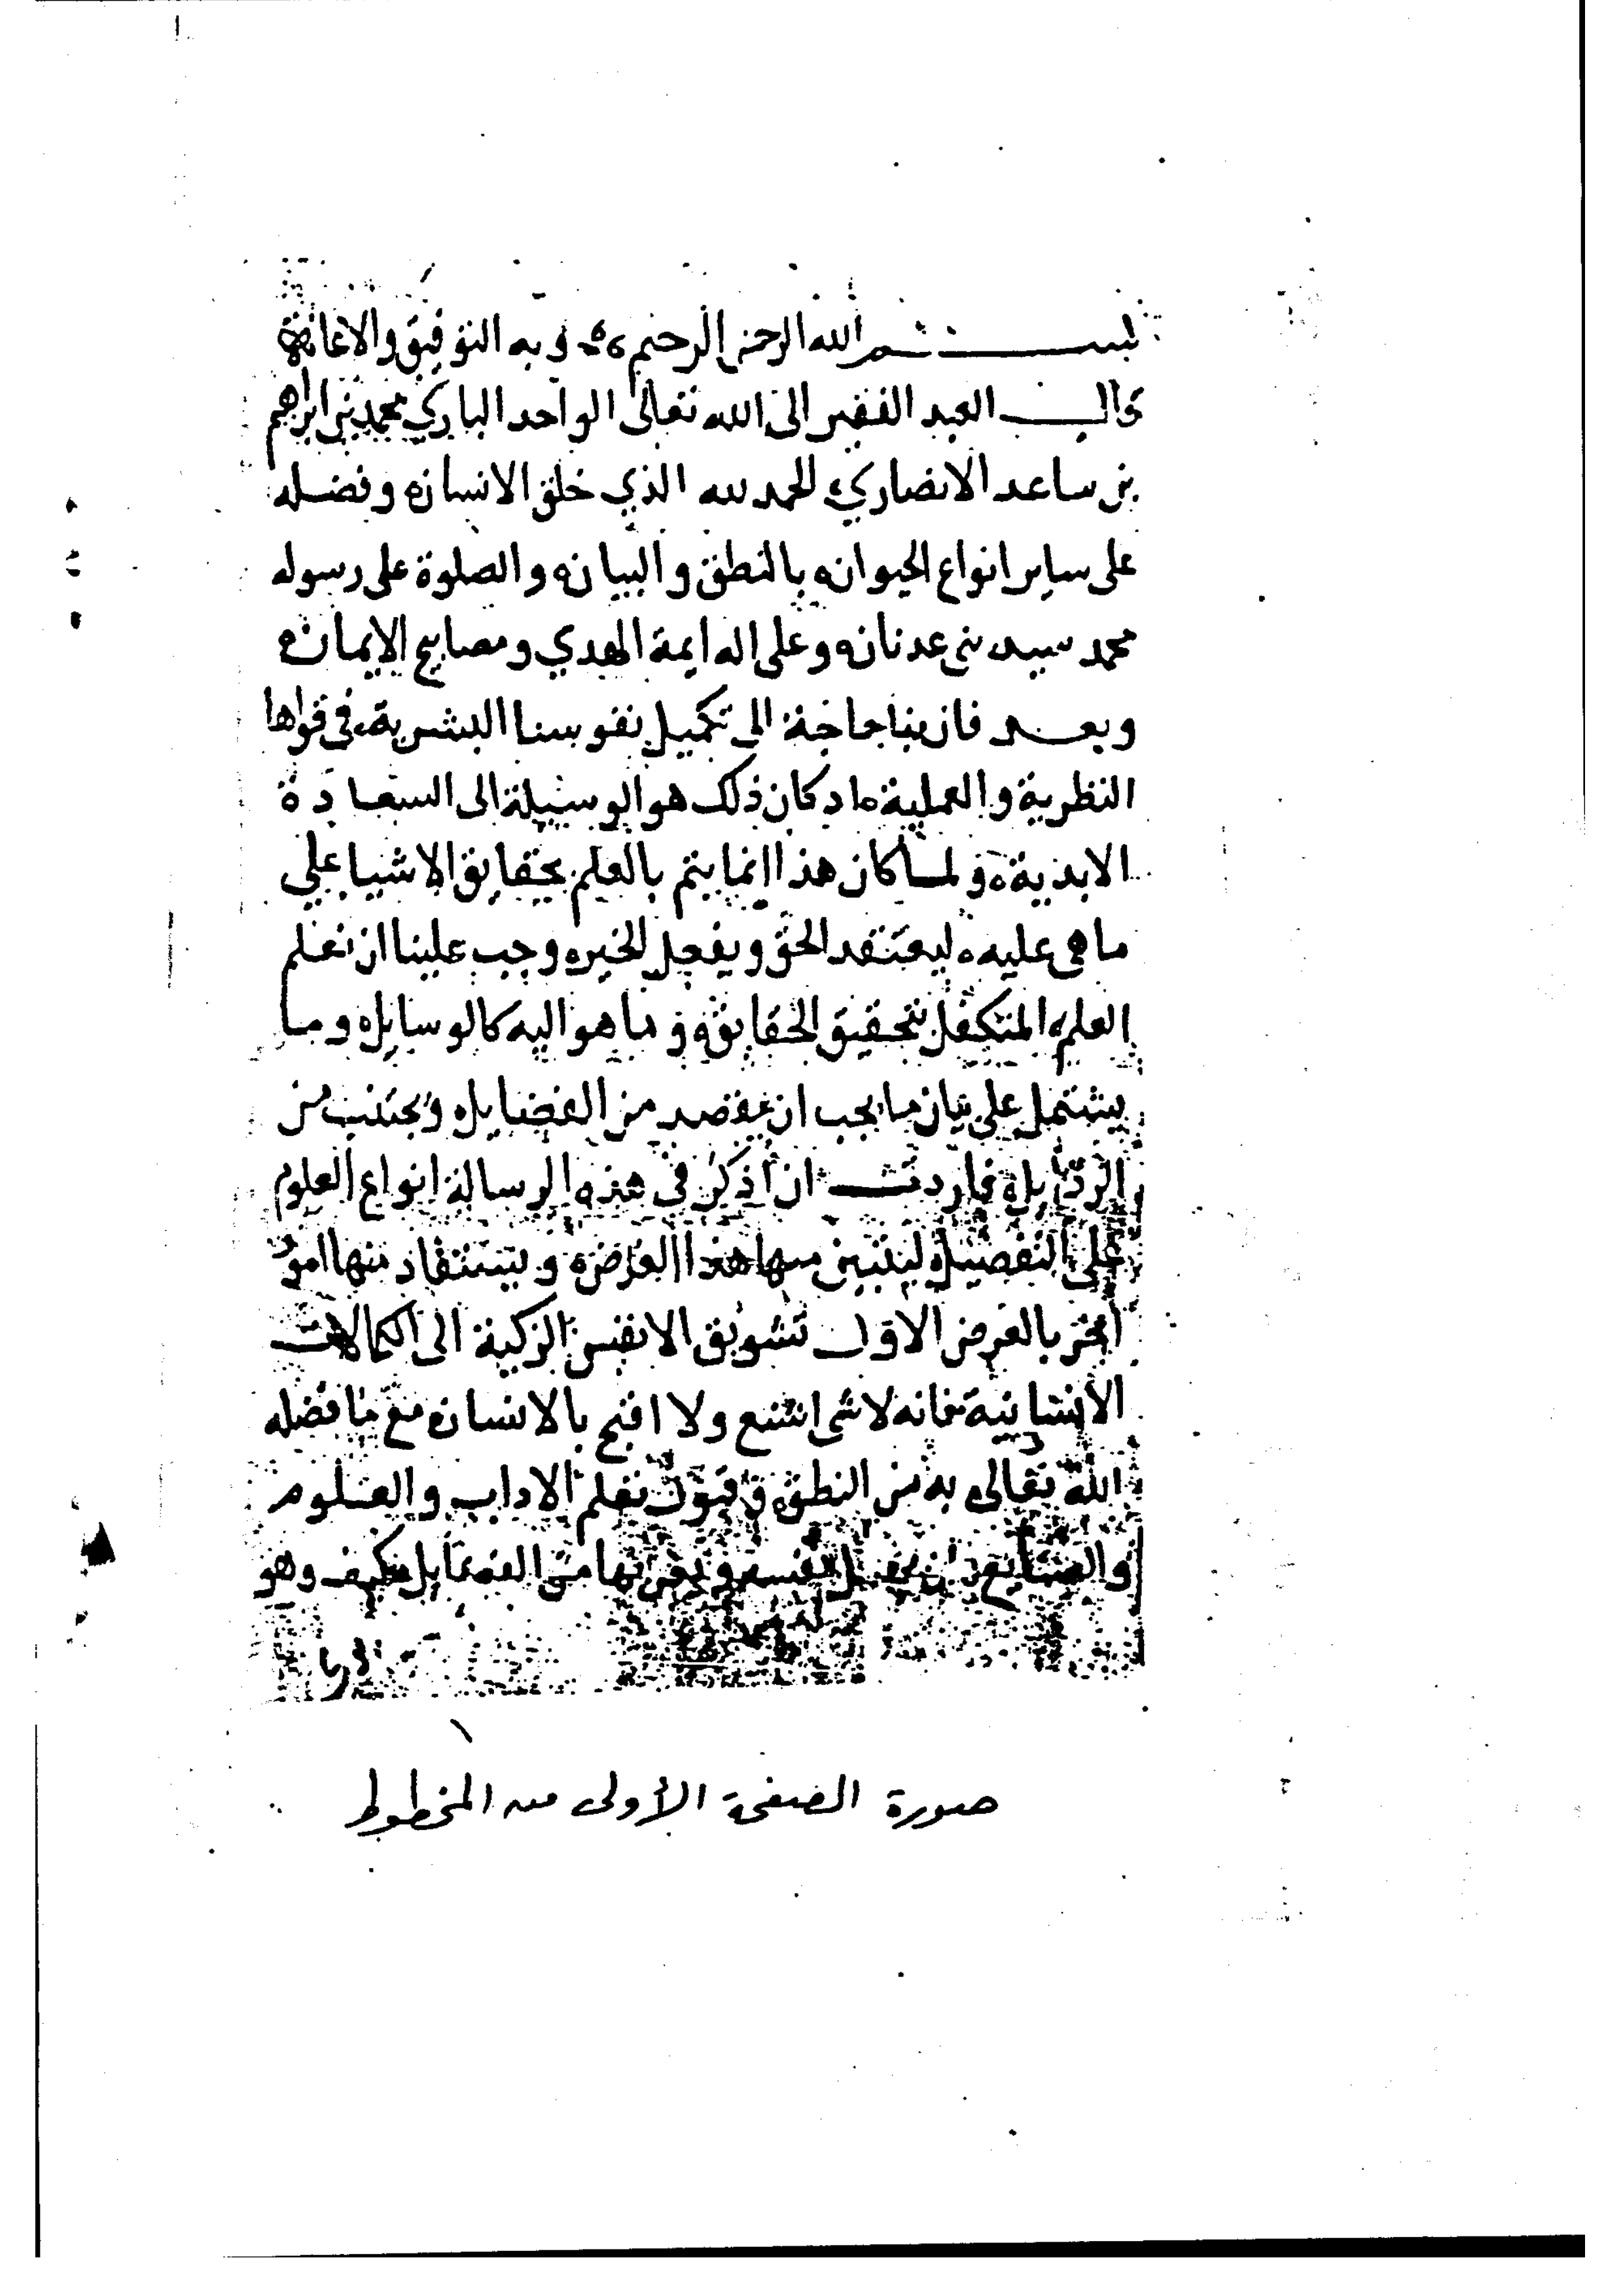 بسم الله الرحمن الرحيم وبه التوفيق والاعانة
قال العبد الفقير الى الله تعالى الواحد الباري محمد بن ابراهيم
بن ساعد الانصاري الحمد لله الذي خلق الانسان وفضله
على ساير انواع الحيوان بالنطق والبيان والصلوة على رسوله
محمد سيد بني عدنان وعلى اله ايمة الهدي ومصابيح الايمان
وبعد فان بنا حاجة الى تكميل نفوسنا البشرية في قواها
النظرية والعملية اد كان ذلك هو الوسيلة الى السعادة
الابدية ولما كان هذا انما يتم بالعلم بحقايق الاشيا علي
ما هي عليه ليعتقد الحق ويفعل الخير وجب علينا ان نعلم
العلم المتكفل بتحقيق الحقايق وما هو اليه كالوسايل وما
يشتمل على بيان ما يجب ان يقصد من الفضايل ويجتنب من
الرذايل فاردت ان اذكر في هذه الرسالة انواع العلوم
على التفصيل ليتبين منها هذا الغرض ويستفاد منها امور
اخر بالغرض الاول تشويق الانفس الزكية الى الكمالات
الانسانية فانه لا شي اشنع ولا اقبح بالانسان مع ما فضله
الله تعالى به من النطق وقبول تعلم الاداب والعلوم
والصنايع ان يهمل نفسه ويعريها من الفضايل فكيف وهو
صورة الصفحة الأولى من المخطوط